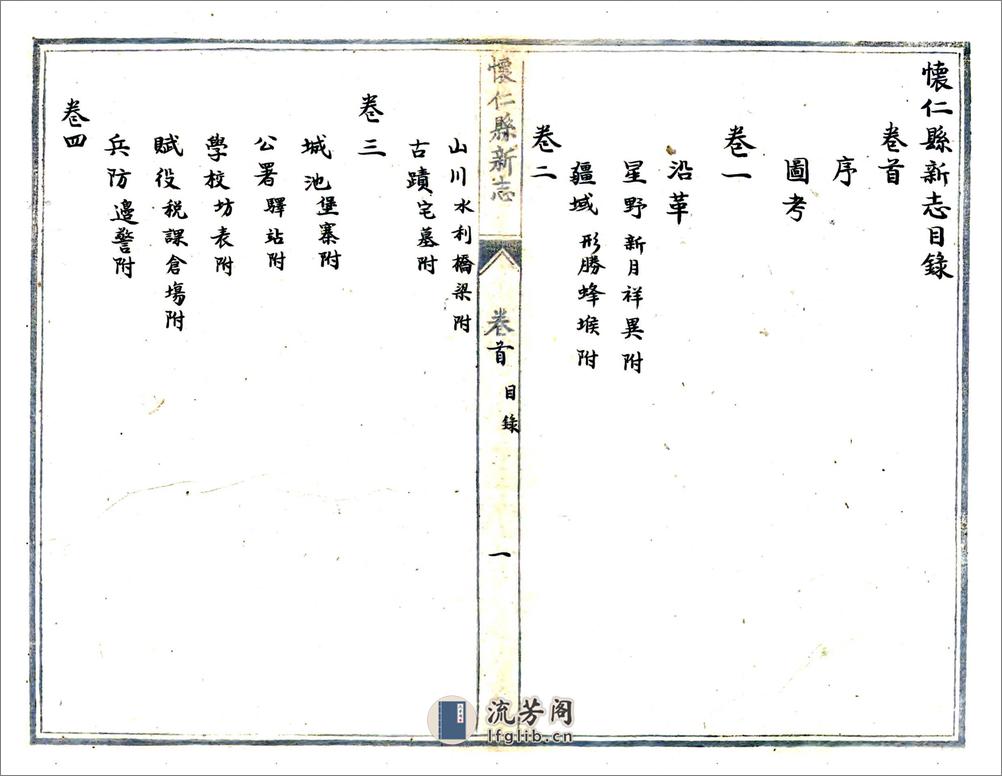 懷仁縣新志目錄
卷首
序
圖考
卷一
沿革
星野 新月祥異附
疆域 形勝蜂堠附
卷二
懷仁縣新志
卷首
目錄
一
山川水利橋梁附
古蹟宅墓附
卷三
城池堡寨附
公署驛站附
學校坊表附
賦役稅課倉塲附
兵防邊警附
卷四
流芳阁
lfglib.cn